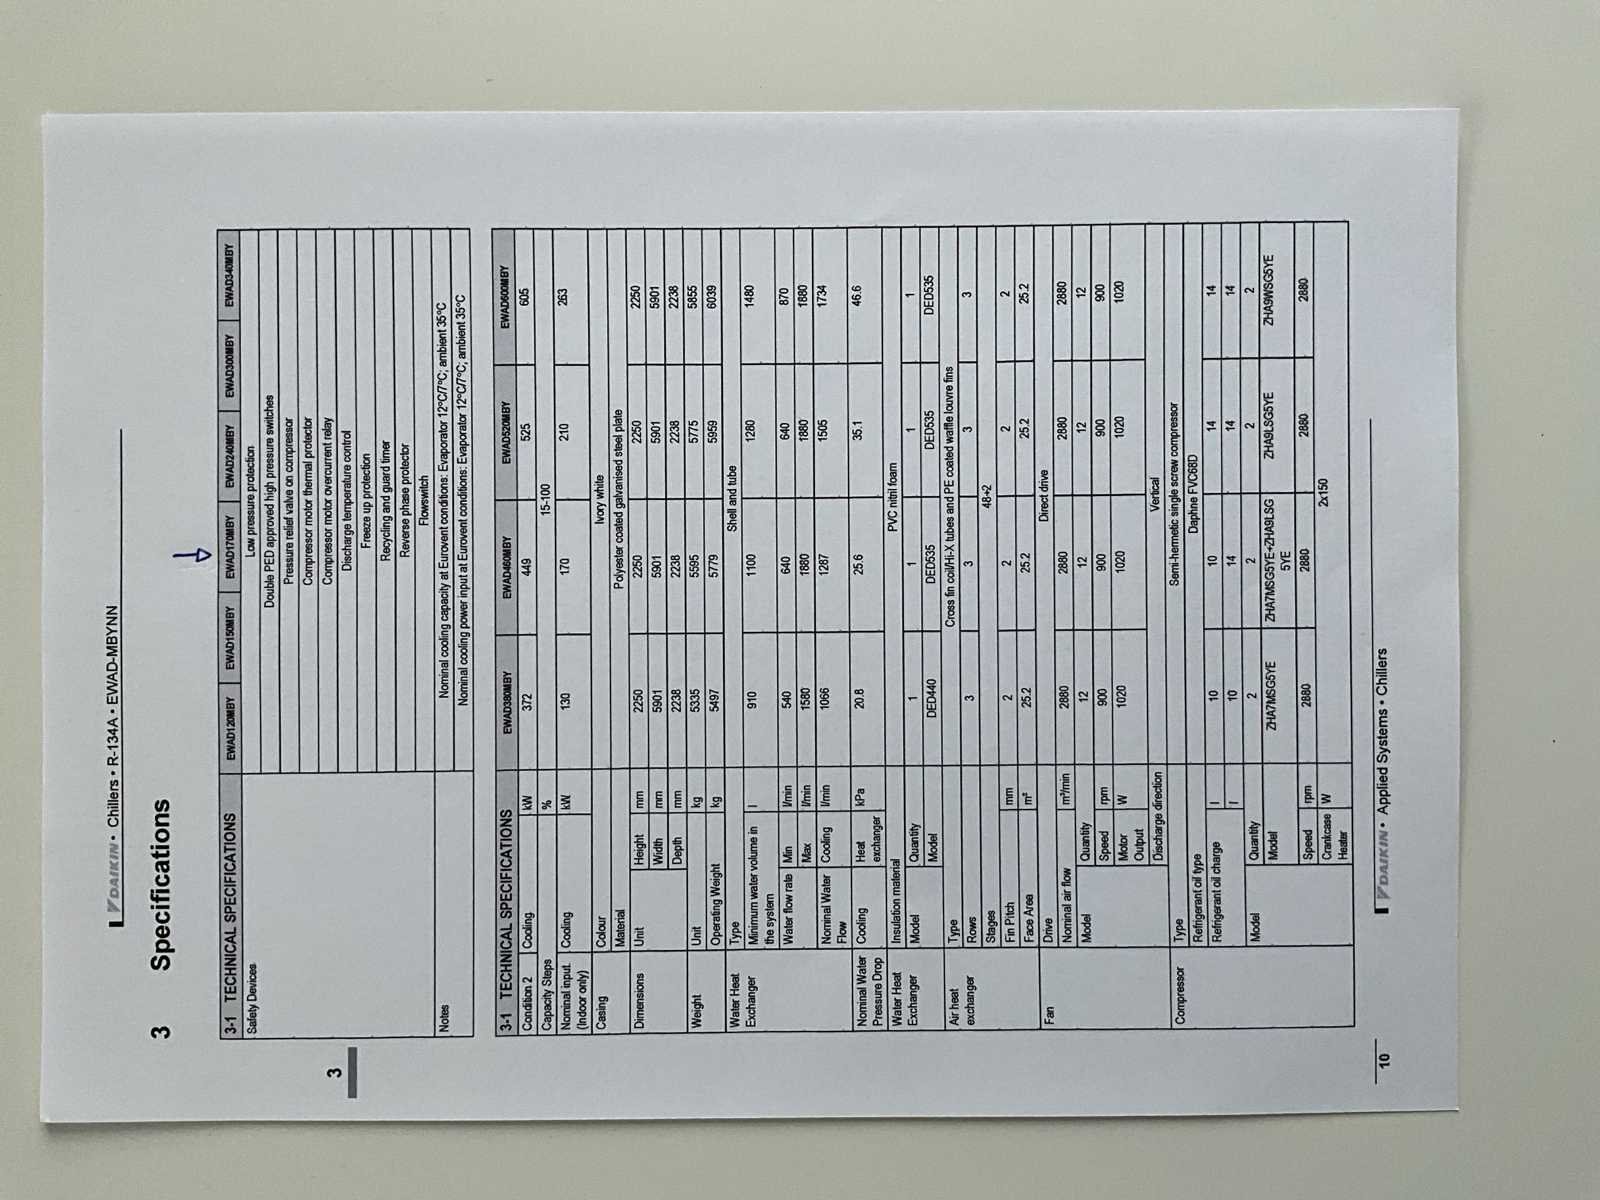 DAIKIN • Chillers • R-134A • EWAD-MBYNN
3 Specifications
3
3-1 TECHNICAL SPECIFICATIONS EWAD120MBY EWAD150MBY EWAD170MBY EWAD240MBY EWAD300MBY EWAD340MBY
Safety Devices Low pressure protection
Double PED approved high pressure switches
Pressure relief valve on compressor
Compressor motor thermal protector
Compressor motor overcurrent relay
Discharge temperature control
Freeze up protection
Recycling and guard timer
Reverse phase protector
Flowswitch
Notes Nominal cooling capacity at Eurovent conditions: Evaporator 12°C/7°C; ambient 35°C
Nominal cooling power input at Eurovent conditions: Evaporator 12°C/7°C; ambient 35°C
3-1 TECHNICAL SPECIFICATIONS EWAD380MBY EWAD460MBY EWAD520MBY EWAD600MBY
Condition 2 Cooling kW 372 449 525 605
Capacity Steps % 15-100
Nominal input. (Indoor only) Cooling kW 130 170 210 263
Casing Colour Ivory white
Material Polyester coated galvanised steel plate
Dimensions Unit Height mm 2250 2250 2250 2250
Width mm 5901 5901 5901 5901
Depth mm 2238 2238 2238 2238
Weight Unit kg 5335 5595 5775 5855
Operating Weight kg 5497 5779 5959 6039
Water Heat Exchanger Type Shell and tube
Minimum water volume in the system l 910 1100 1280 1480
Water flow rate Min l/min 540 640 640 870
Max l/min 1580 1880 1880 1880
Nominal Water Flow Cooling l/min 1066 1287 1505 1734
Nominal Water Pressure Drop Cooling Heat exchanger kPa 20.8 25.6 35.1 46.6
Water Heat Exchanger Insulation material PVC nitril foam
Model Quantity 1 1 1 1
Model DED440 DED535 DED535 DED535
Air heat exchanger Type Cross fin coil/Hi-X tubes and PE coated waffle louvre fins
Rows 3 3 3 3
Stages 48+2
Fin Pitch mm 2 2 2 2
Face Area m² 25.2 25.2 25.2 25.2
Fan Drive Direct drive
Nominal air flow m³/min 2880 2880 2880 2880
Model Quantity 12 12 12 12
Speed rpm 900 900 900 900
Motor Output W 1020 1020 1020 1020
Discharge direction Vertical
Compressor Type Semi-hermetic single screw compressor
Refrigerant oil type Daphne FVC68D
Refrigerant oil charge l 10 10 14 14
l 10 14 14 14
Model Quantity 2 2 2 2
Model ZHA7MSG5YE ZHA7MSG5YE+ZHA9LSG5YE ZHA9LSG5YE ZHA9WSG5YE
Speed rpm 2880 2880 2880 2880
Crankcase Heater W 2x150
10
DAIKIN • Applied Systems • Chillers